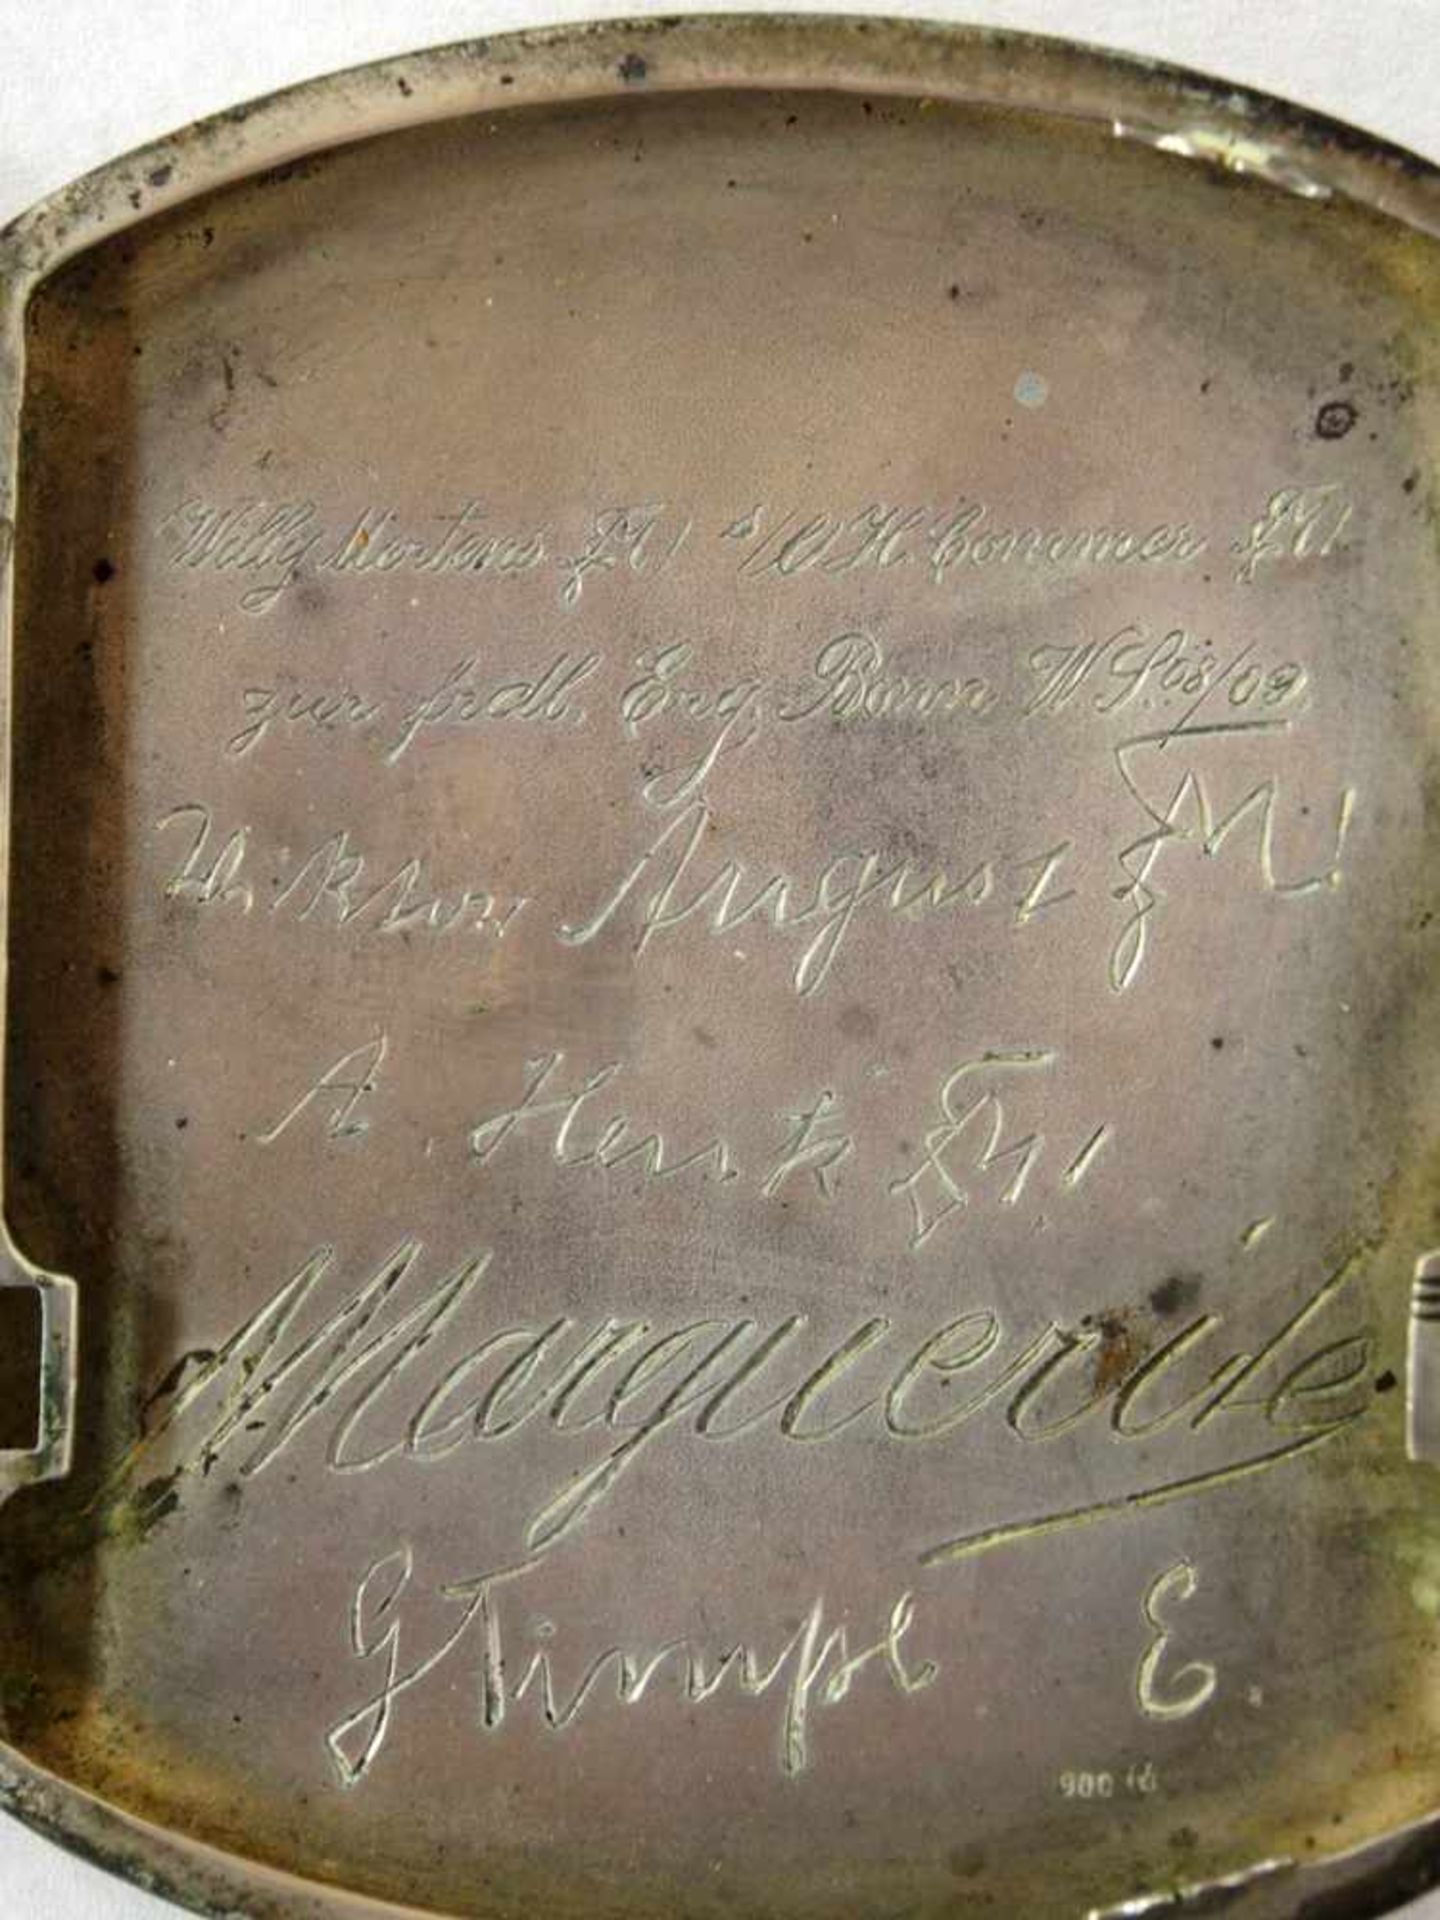 Willy Mertens FM! s/l H. Commer FM!
zur frdl. Erg. Bonn W.S. 08/09
Wiktor August FM!
A. Henk FM!
Marguerite
G Timpe E
900